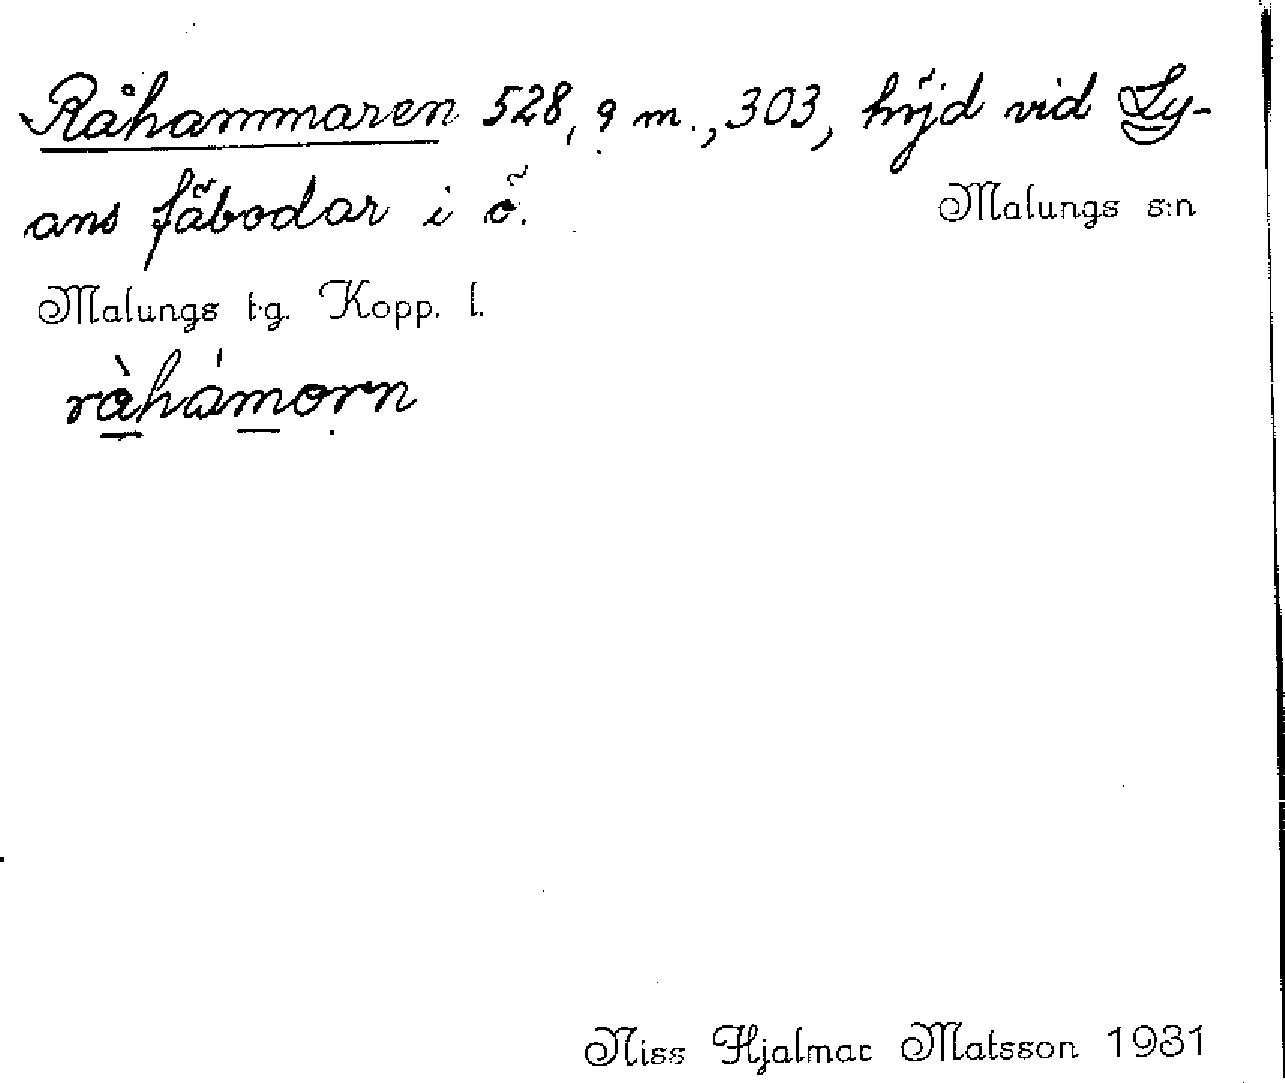 Råhammaren 528,9 m., 303, höjd vid Ly-
ans fäbodar i ö.
Malungs s:n
Malungs t.g. Kopp. l.
ràhámorn
Niss Hjalmar Matsson 1931